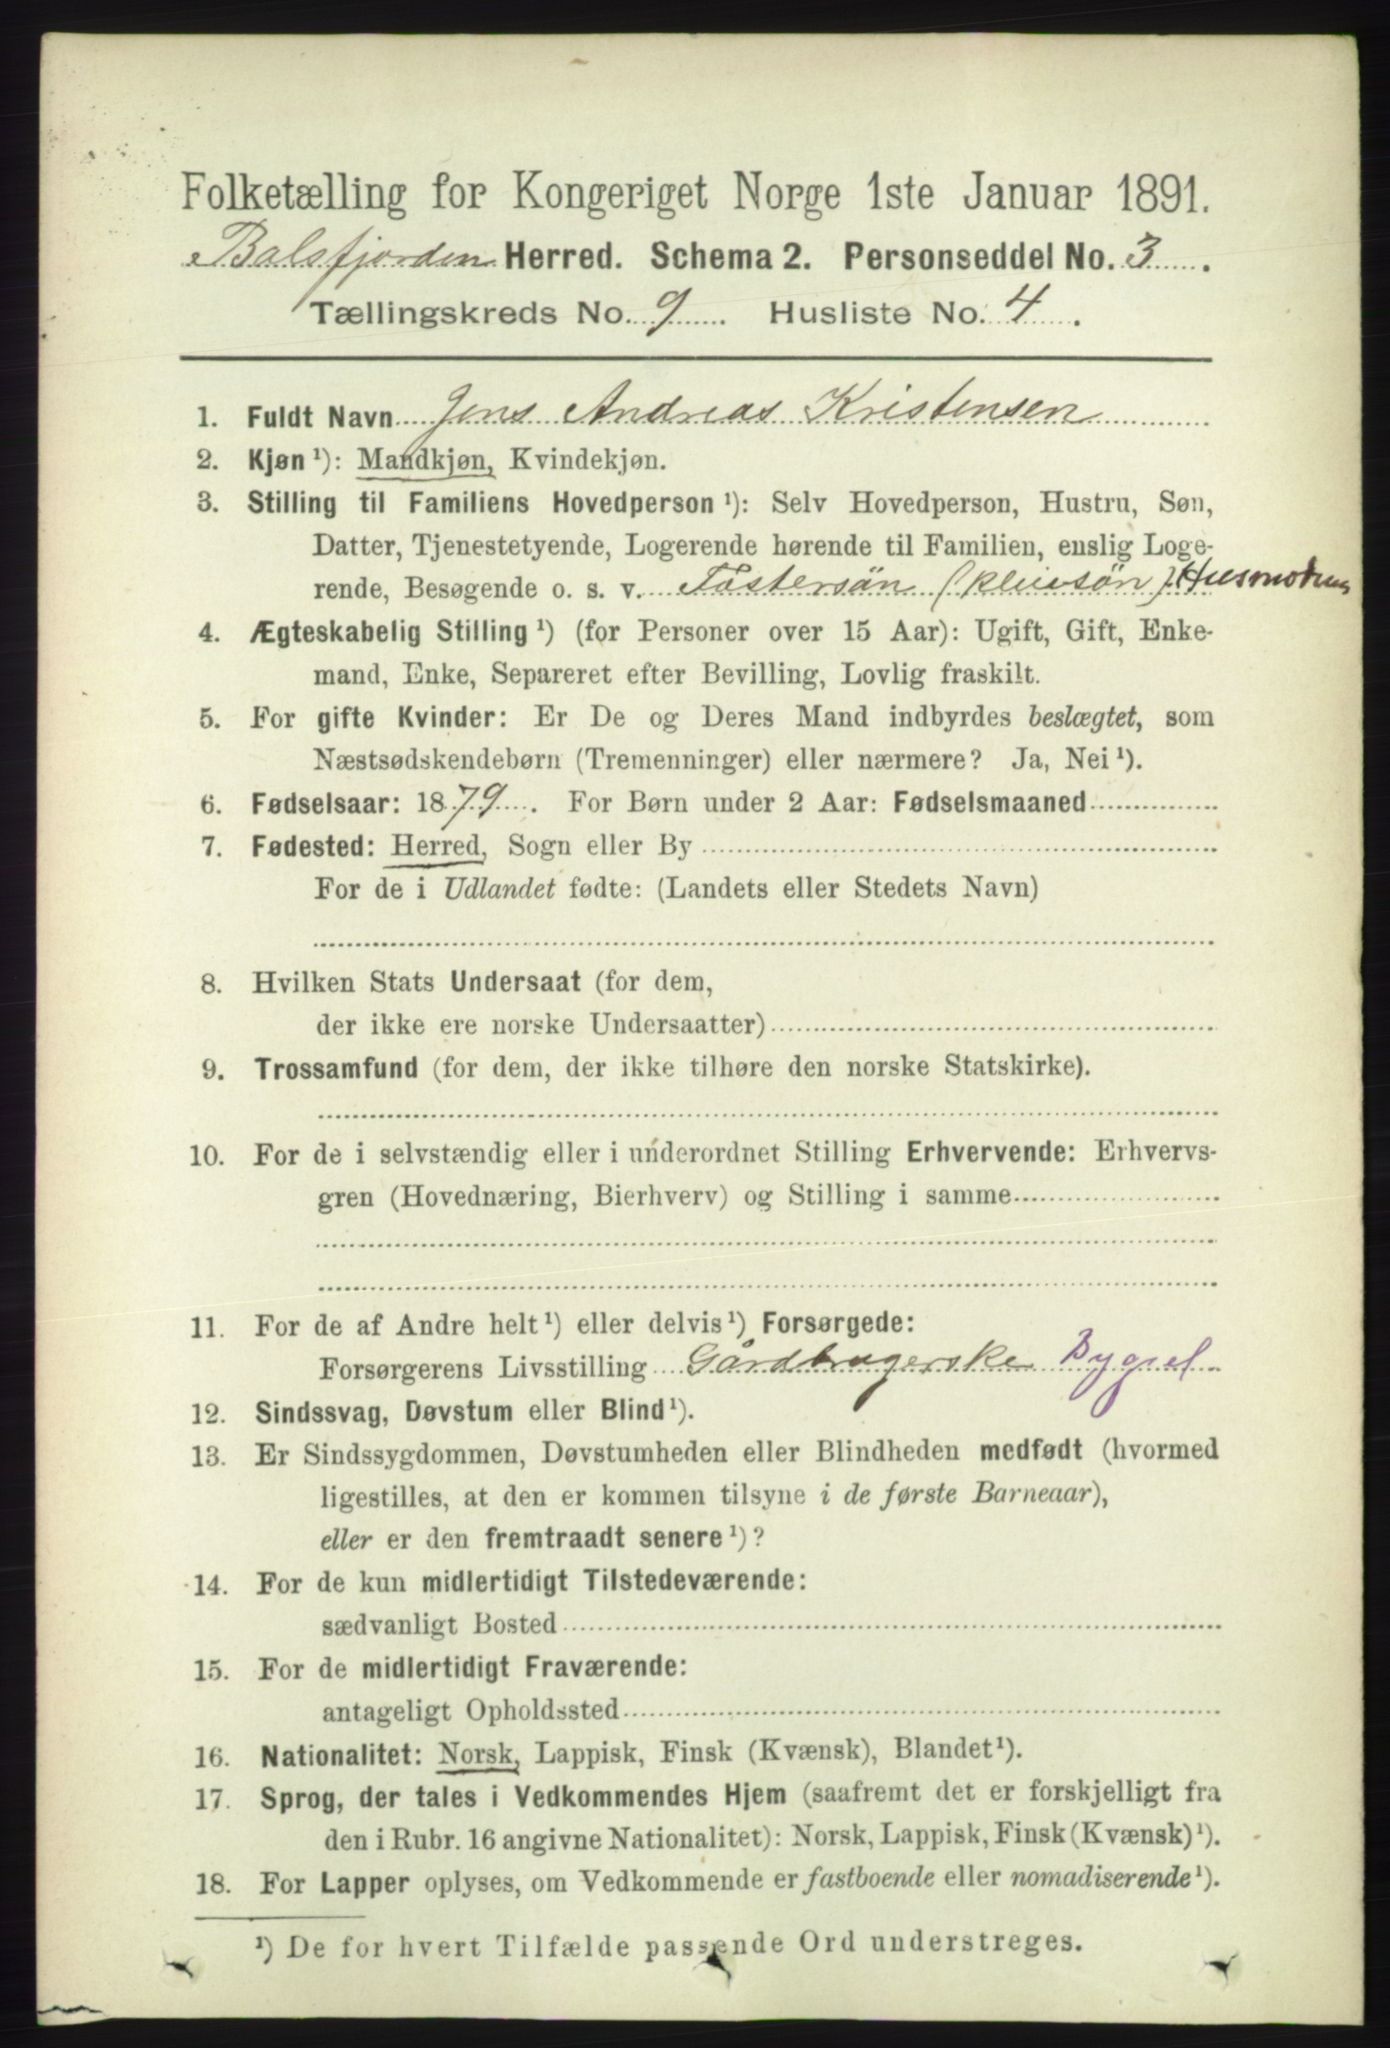 Folketælling for Kongeriget Norge 1ste Januar 1891.
Balsfjorden Herred. Schema 2. Personseddel No. 3.
Tællingskreds No. 9. Husliste No. 4.
1. Fuldt Navn Jens Andreas Kristensen
2. Kjøn ¹): Mandkjøn, Kvindekjøn.
3. Stilling til Familiens Hovedperson ¹): Selv Hovedperson, Hustru, Søn,
Datter, Tjenestetyende, Logerende hørende til Familien, enslig Loge-
rende, Besøgende o. s. v. Fostersön (pleiesön)
4. Ægteskabelig Stilling ¹) (for Personer over 15 Aar): Ugift, Gift, Enke-
mand, Enke, Separeret efter Bevilling, Lovlig fraskilt.
5. For gifte Kvinder: Er De og Deres Mand indbyrdes beslægtet, som
Næstsødskendebørn (Tremenninger) eller nærmere? Ja, Nei ¹).
6. Fødselsaar: 1879. For Børn under 2 Aar: Fødselsmaaned
7. Fødested: Herred, Sogn eller By
For de i Udlandet fødte: (Landets eller Stedets Navn)
8. Hvilken Stats Undersaat (for dem,
der ikke ere norske Undersaatter)
9. Trossamfund (for dem, der ikke tilhøre den norske Statskirke).
10. For de i selvstændig eller i underordnet Stilling Erhvervende: Erhvervs-
gren (Hovednæring, Bierhverv) og Stilling i samme
11. For de af Andre helt ¹) eller delvis ¹) Forsørgede:
Forsørgerens Livsstilling Gårdbrugerske Bygsel
12. Sindssvag, Døvstum eller Blind ¹).
13. Er Sindssygdommen, Døvstumheden eller Blindheden medfødt (hvormed
ligestilles, at den er kommen tilsyne i de første Barneaar),
eller er den fremtraadt senere ¹)?
14. For de kun midlertidigt Tilstedeværende:
sædvanligt Bosted
15. For de midlertidigt Fraværende:
antageligt Opholdssted
16. Nationalitet: Norsk, Lappisk, Finsk (Kvænsk), Blandet ¹).
17. Sprog, der tales i Vedkommendes Hjem (saafremt det er forskjelligt fra
den i Rubr. 16 angivne Nationalitet): Norsk, Lappisk, Finsk (Kvænsk) ¹).
18. For Lapper oplyses, om Vedkommende er fastboende eller nomadiserende ¹).
¹) De for hvert Tilfælde passende Ord understreges.